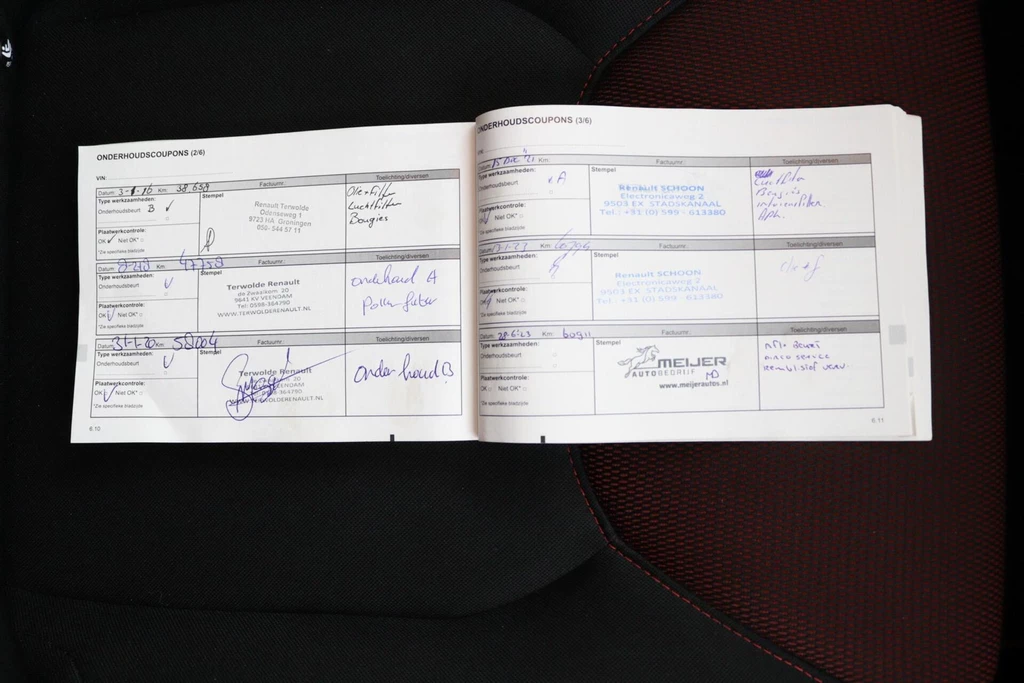 ONDERHOUDSCOUPONS (2/6)
VIN:
Datum: Km: 38.659 Factuurnr.: Toelichting/diversen
Type werkzaamheden:
Onderhoudsbeurt B ✓
Stempel
Renault Terwolde
Odenseweg 1
9723 HA Groningen
050- 544 57 11
Olie+filter
Luchtfilter
Bougies
Plaatwerkcontrole:
OK ✓ Niet OK* □
*Zie specifieke bladzijde
Datum: Km: 47758 Factuurnr.: Toelichting/diversen
Type werkzaamheden:
Onderhoudsbeurt ✓
Stempel
Terwolde Renault
de Zwaaikom 20
9641 KV VEENDAM
Tel: 0598-364790
WWW.TERWOLDERENAULT.NL
onderhoud A
pollenfilter
Plaatwerkcontrole:
OK ✓ Niet OK* □
*Zie specifieke bladzijde
Datum: 31-1-20 Km: 58004 Factuurnr.: Toelichting/diversen
Type werkzaamheden:
Onderhoudsbeurt ✓
Stempel
Terwolde Renault
20
VEENDAM
WWW.TERWOLDERENAULT.NL
onderhoud B
Plaatwerkcontrole:
OK ✓ Niet OK* □
*Zie specifieke bladzijde
6.10
ONDERHOUDSCOUPONS (3/6)
VIN:
Datum: 15 Dec '21 Km: Factuurnr.: Toelichting/diversen
Type werkzaamheden:
Onderhoudsbeurt A
Stempel
Renault SCHOON
Electronicaweg 2
9503 EX STADSKANAAL
Tel.: +31 (0) 599 - 613380
Luchtfilter
Bougies
interieurfilter
Plaatwerkcontrole:
OK Niet OK* □
*Zie specifieke bladzijde
Datum: Km: Factuurnr.: Toelichting/diversen
Type werkzaamheden:
Onderhoudsbeurt
Stempel
Renault SCHOON
Electronicaweg 2
9503 EX STADSKANAAL
Tel.: +31 (0) 599 - 613380
Plaatwerkcontrole:
OK Niet OK* □
*Zie specifieke bladzijde
Datum: 28-6-23 Km: 60911 Factuurnr.: Toelichting/diversen
Type werkzaamheden:
Onderhoudsbeurt
Stempel
MEIJER
AUTOBEDRIJF
www.meijerautos.nl
beurt
airco service
remvloeistof verv.
Plaatwerkcontrole:
OK □ Niet OK* □
*Zie specifieke bladzijde
6.11